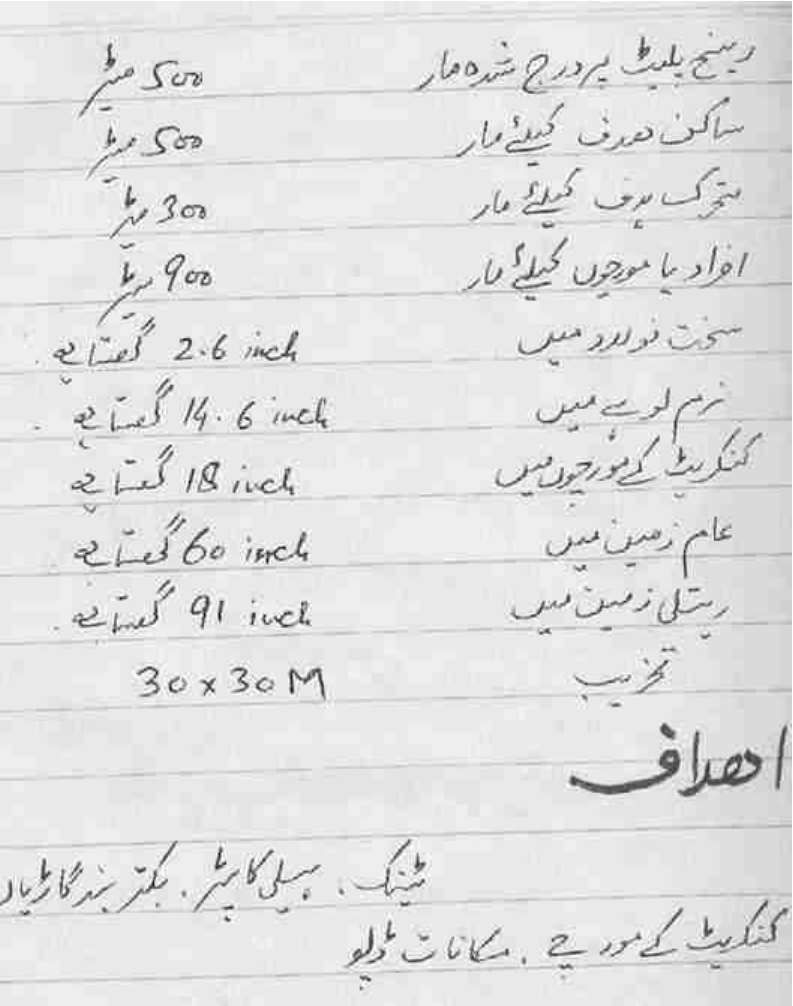 رینج پلیٹ پر درج شدہ مار 500 میٹر
ساکن ھدف کیلئے مار 500 میٹر
متحرک ہدف کیلئے مار 300 میٹر
افراد یا مورچوں کیلئے مار 900 میٹر
سخت فولاد میں 2.6 inch گھستا ہے
نرم لوہے میں 14.6 inch گھستا ہے
کنکریٹ کے مورچوں میں 18 inch گھستا ہے
عام زمین میں 60 inch گھستا ہے
ریتلی زمین میں 91 inch گھستا ہے
تخریب 30 x 30 M
اھداف
ٹینک، ہیلی کاپٹر، بکتر بند گاڑیاں
کنکریٹ کے مورچے، مکانات